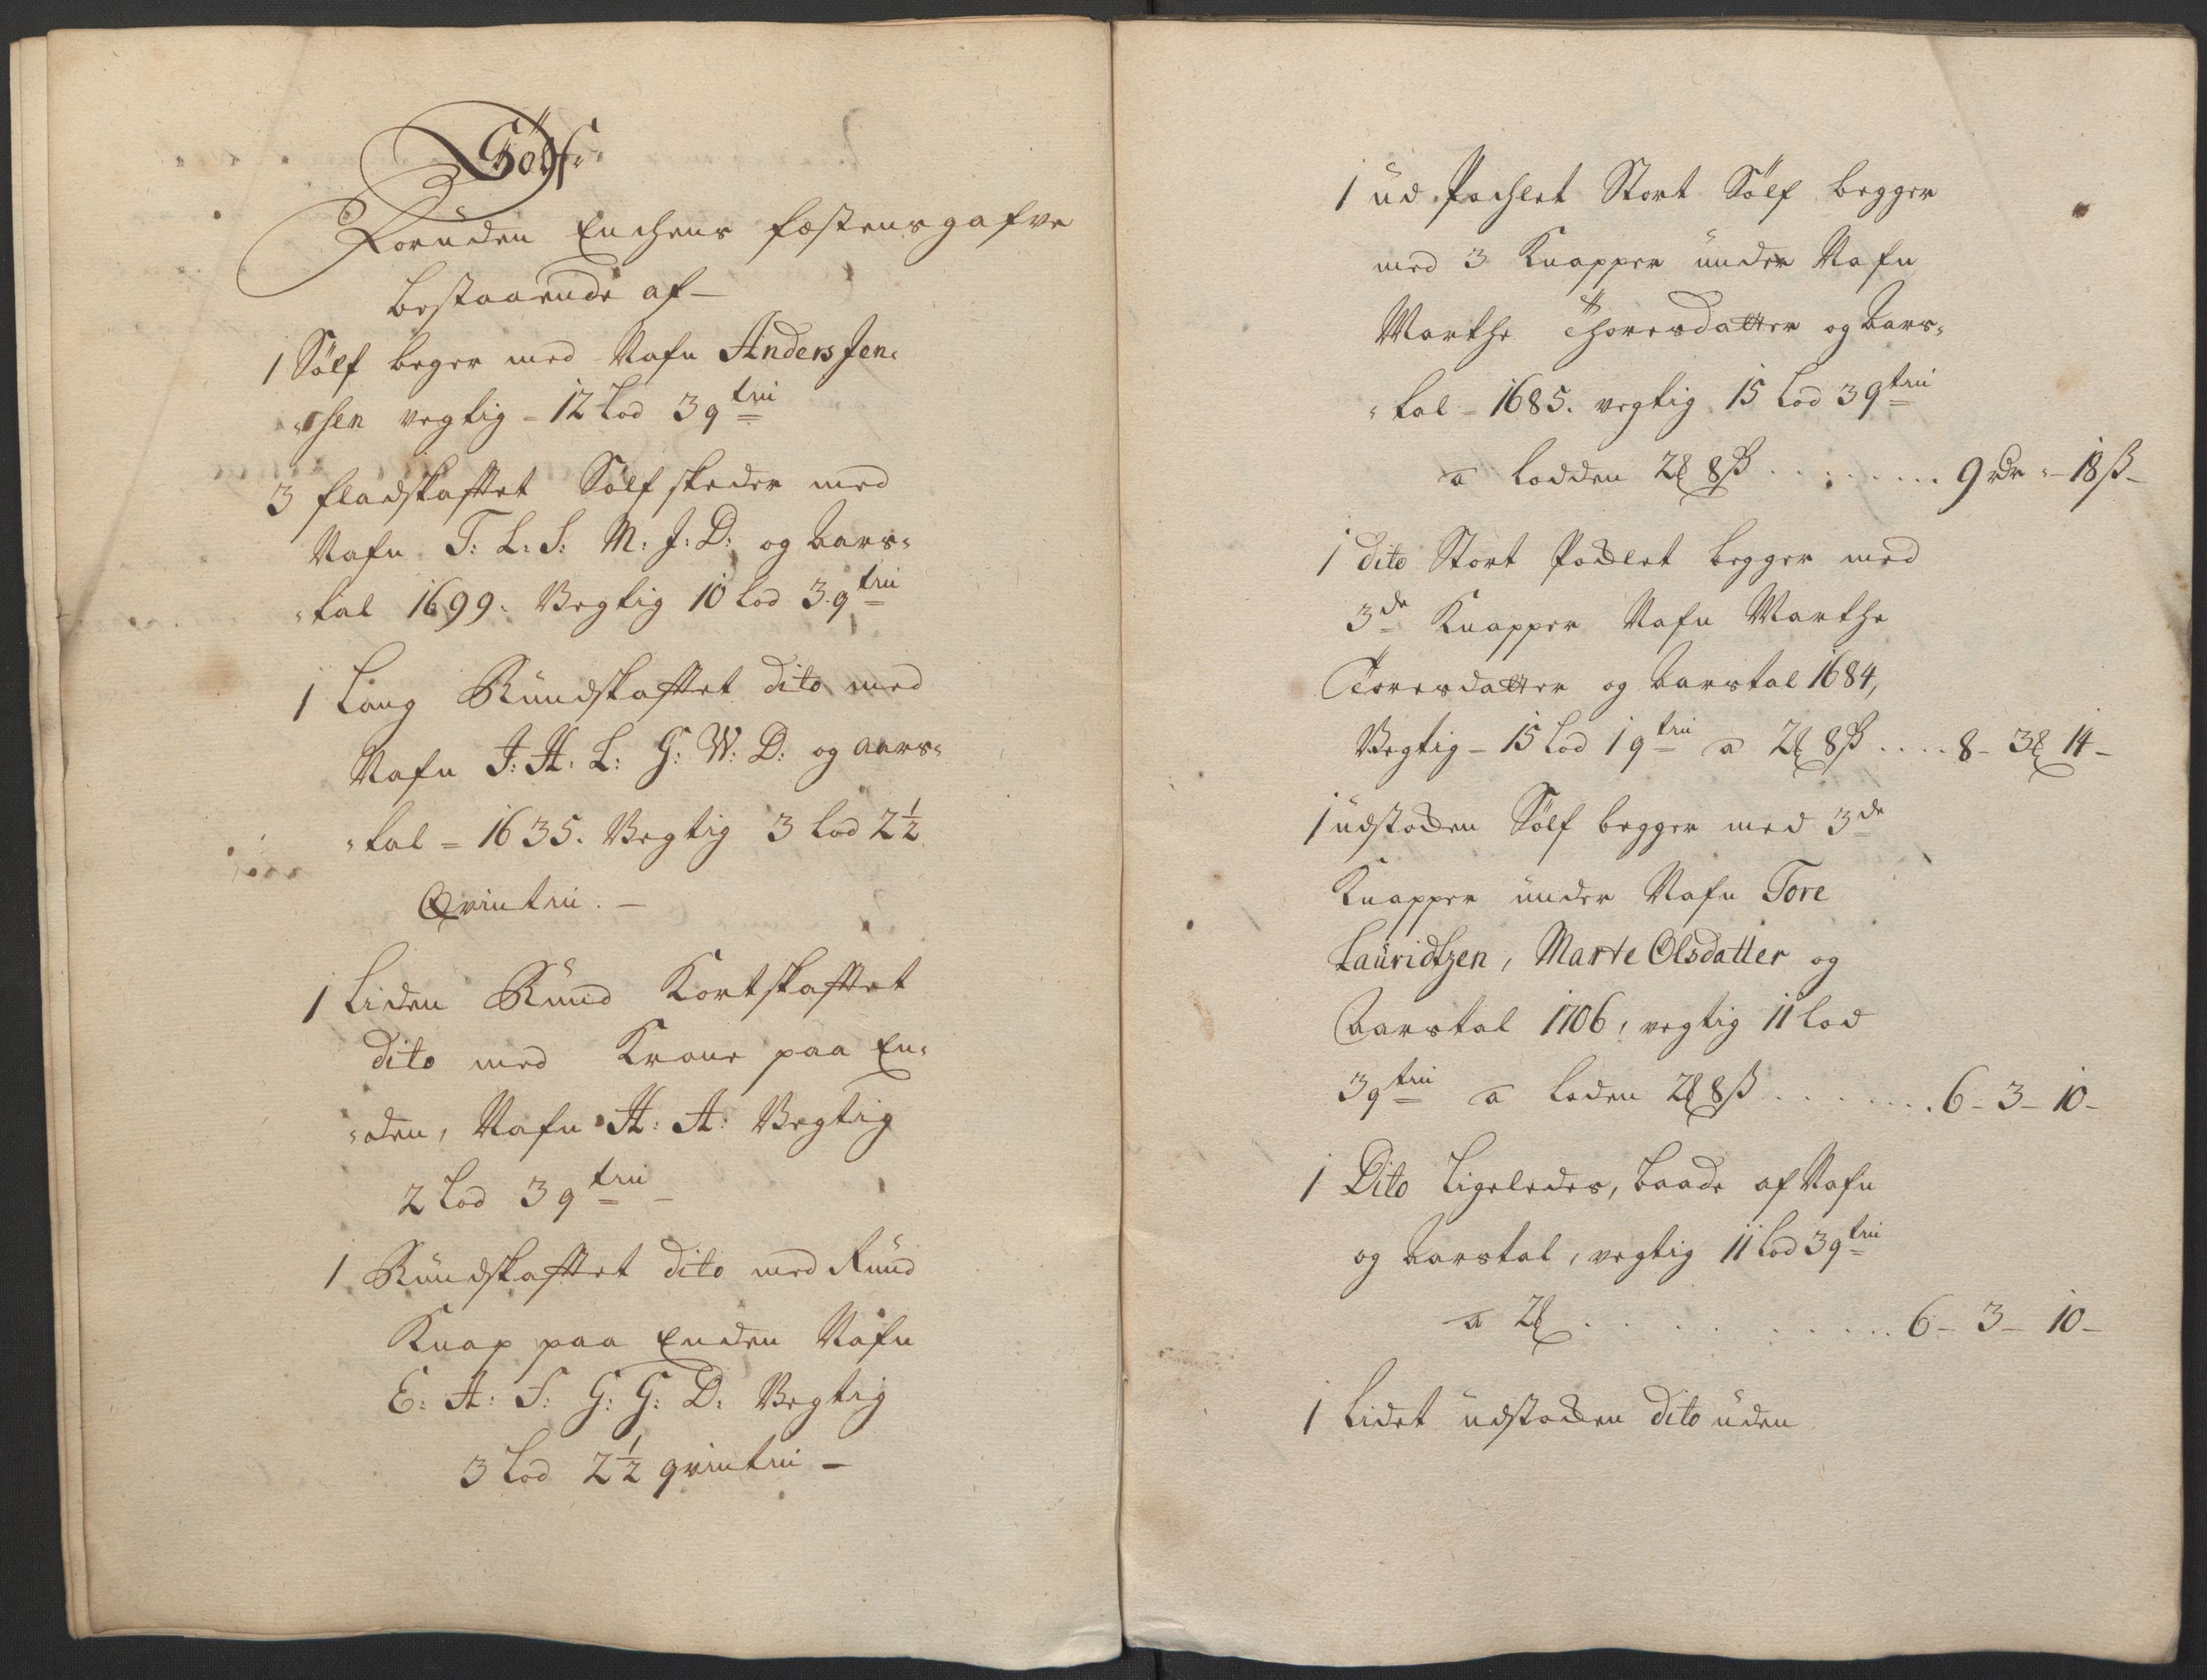 Sølf
Foruden Enchens fæstensgafve
bestaaende af -
1 Sølf beger med Nafn Anders Jen-
-ssen vegtig - 12 Lod 3 qtin
3 fladskafftet Sølf skeder med
Nafn T: L: S: M: J: D: og Aars-
-tal 1699. Vegtig 10 Lod 3 qtin
1 Lang Rundskafftet dito med
Nafn J: H: L: G: W: D: og aars-
-tal - 1635. Vegtig 3 Lod 2½
Qvintin. -
1 Liden Rund Kortskafftet
dito med Krone paa En-
-den, Nafn H: A: Vegtig
2 Lod 3 qtin -
1 Rundskafftet dito med Rund
Knap paa Enden Nafn
E: A: S: G: G: D: Vegtig
3 Lod 2½ qvintin -
1 ud Pochlet Stort Sølf begger
med 3 Knapper under Nafn
Marthe Thoresdatter og Aars-
-tal - 1685. vegtig 15 Lod 3 qtin
a Lodden 2 8ß . . . . . . . 9 rdr - 18ß -
1 dito Stort Pocklet begger med
3de Knapper Nafn Marthe
Toresdatter og Aarstal 1684,
Vegtig - 15 Lod 1 qtin a 2 8ß . . . . 8 - 3 14 -
1 udstocken Sølf begger med 3de
Knapper under Nafn Tore
Lauridtzen, Marte Olsdatter og
Aarstal 1706, vegtig 11 Lod
3 qtin a Loden 2 8ß . . . . . . 6 - 3 - 10 -
1 Dito Ligeledes, baade af Nafn
og Aarstal, vegtig 11 Lod 3 qtin
a 2 . . . . . . . . 6 - 3 - 10 -
1 Lidet udstocken dito uden